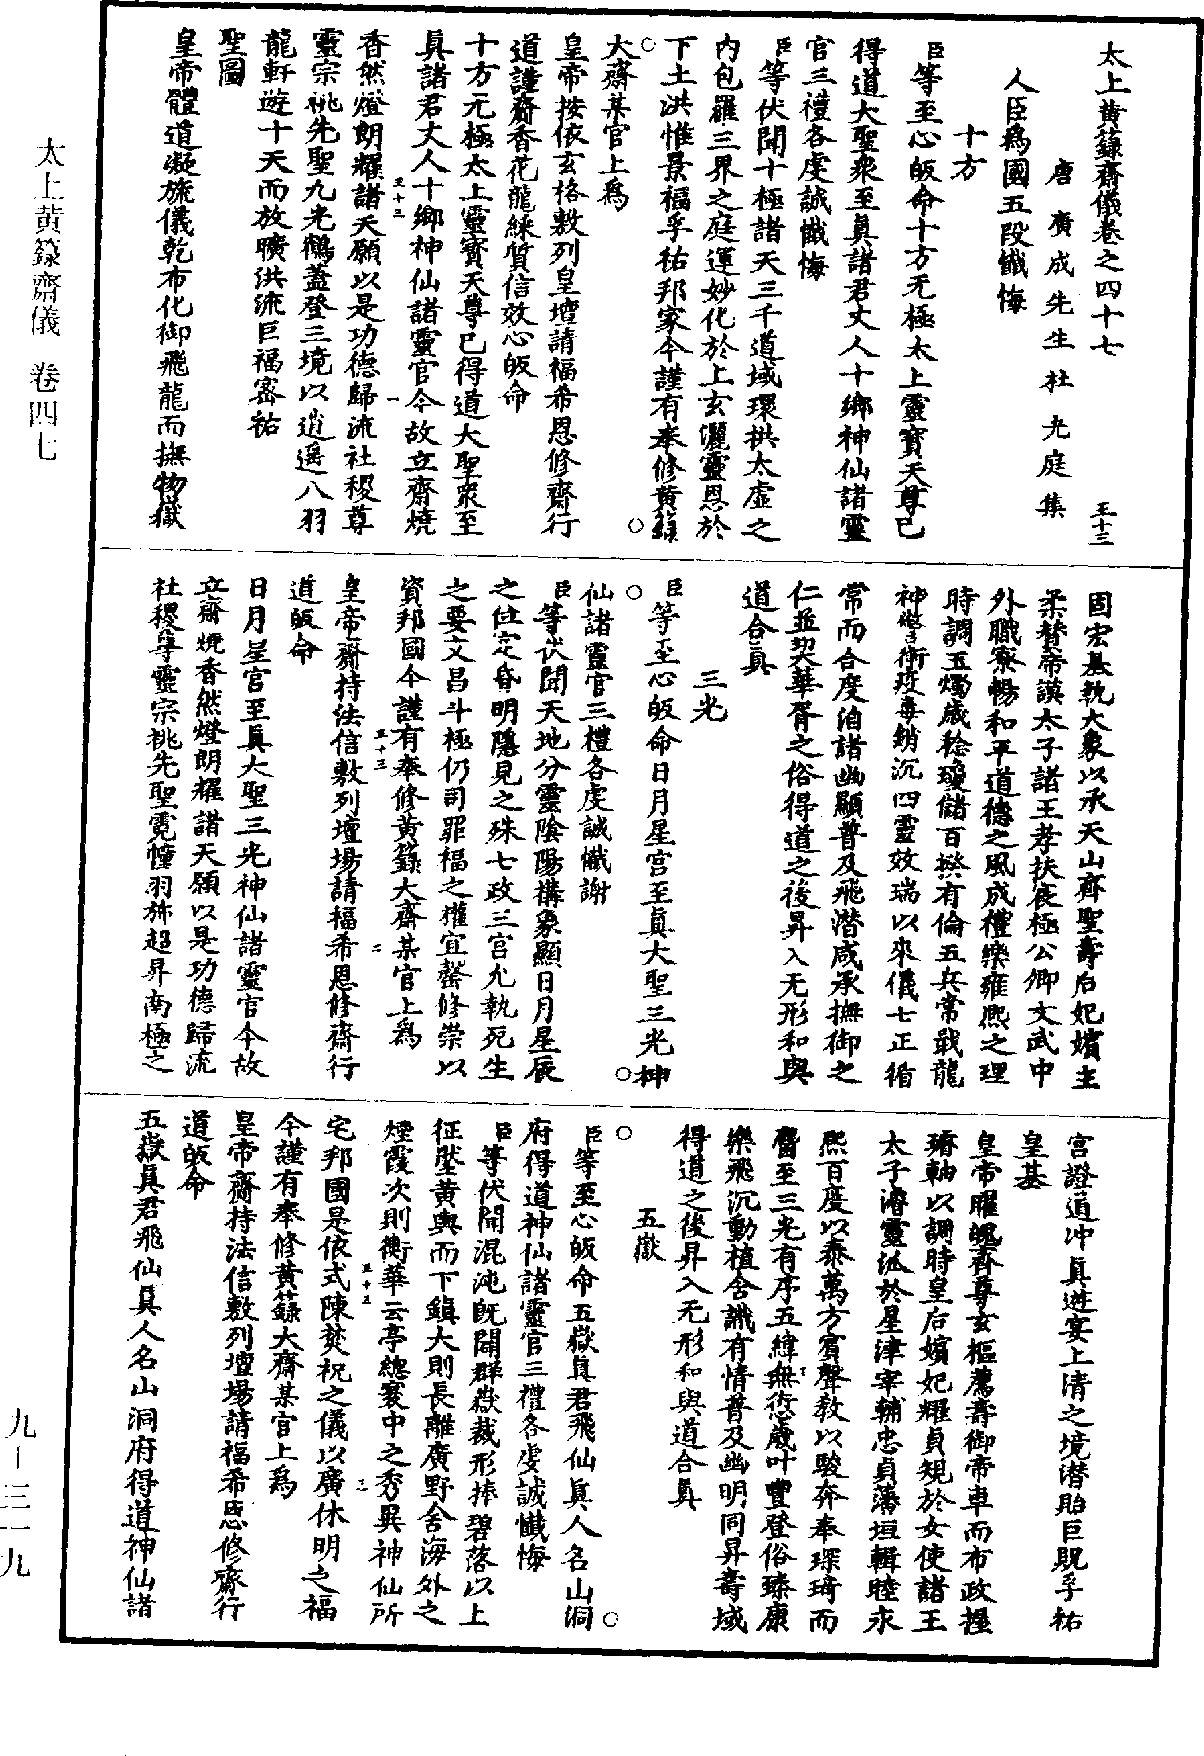 太上黃籙齋儀卷之四十七
王十三
唐廣成先生杜光庭集
人臣爲國五段懺悔
十方
臣等至心皈命十方无極太上靈寶天尊已
得道大聖衆至眞諸君丈人十鄉神仙諸靈
官三禮各虔誠懺悔
臣等伏聞十極諸天三千道域環拱太虛之
內包羅三界之庭運妙化於上玄儷靈恩於
下土洪惟景福孚祐邦家今謹有奉修黃籙
大齋某官上爲
皇帝按依玄格敷列皇壇請福希恩修齋行
道謹齋香花龍綵質信效心皈命
十方元極太上靈寶天尊已得道大聖衆至
眞諸君丈人十鄉神仙諸靈官今故立齋燒
香然燈朗耀諸天願以是功德歸流社稷尊
靈宗祧先聖九光鶴蓋登三境以逍遙八羽
龍軒遊十天而放曠洪流巨福密祐
聖圖
皇帝體道凝旒儀乾布化御飛龍而撫物嶽
固宏基執大象以承天山齊聖壽后妃嬪主
柔贊帝謨太子諸王孝扶宸極公卿文武中
外職寮暢和平道德之風成禮樂雍熙之理
時調五燭歲稔瓊儲百揆有倫五兵常戢龍
神警衛疫毒銷沉四靈效瑞以來儀七正循
常而合度洎諸幽顯普及飛潜咸承撫御之
仁並契華胥之俗得道之後昇入无形和與
道合眞
三光
臣等至心皈命日月星宮至眞大聖三光神
仙諸靈官三禮各虔誠懺謝
臣等伏聞天地分靈陰陽搆象顯日月星辰
之位定昏明隱見之殊七政三官允執死生
之要文昌斗極仍司罪福之權宜罄修崇以
資邦國今謹有奉修黃籙大齋某官上爲
皇帝齋持法信敷列壇場請福希恩修齋行
道皈命
日月星宮至眞大聖三光神仙諸靈官今故
立齋燒香然燈朗耀諸天願以是功德歸流
社稷尊靈宗祧先聖霓幢羽斾超昇南極之
宮證道冲眞遊宴上清之境潜貽巨貺孚祐
皇基
皇帝曜魄齊尊玄樞薦壽御帝車而布政握
璿軸以調時皇后嬪妃耀貞規於女使諸王
太子濬靈派於星津宰輔忠貞藩垣輯睦永
熙百度以泰萬方賓聲教以駿奔奉琛琦而
麕至三光有序五緯無愆歲叶豐登俗臻康
樂飛沉動植含識有情普及幽明同昇壽域
得道之後昇入无形和與道合眞
五嶽
臣等至心皈命五嶽眞君飛仙眞人名山洞
府得道神仙諸靈官三禮各虔誠懺悔
臣等伏聞混沌既開群嶽裁形捧碧落以上
征壓黃輿而下鎮大則長離廣野舍海外之
煙霞次則衡華云亭總寰中之秀異神仙所
宅邦國是依式陳焚祝之儀以廣休明之福
今謹有奉修黃籙大齋某官上爲
皇帝齋持法信敷列壇場請福希恩修齋行
道皈命
五嶽眞君飛仙眞人名山洞府得道神仙諸
太上黃籙齋儀 卷四七
九—三一九